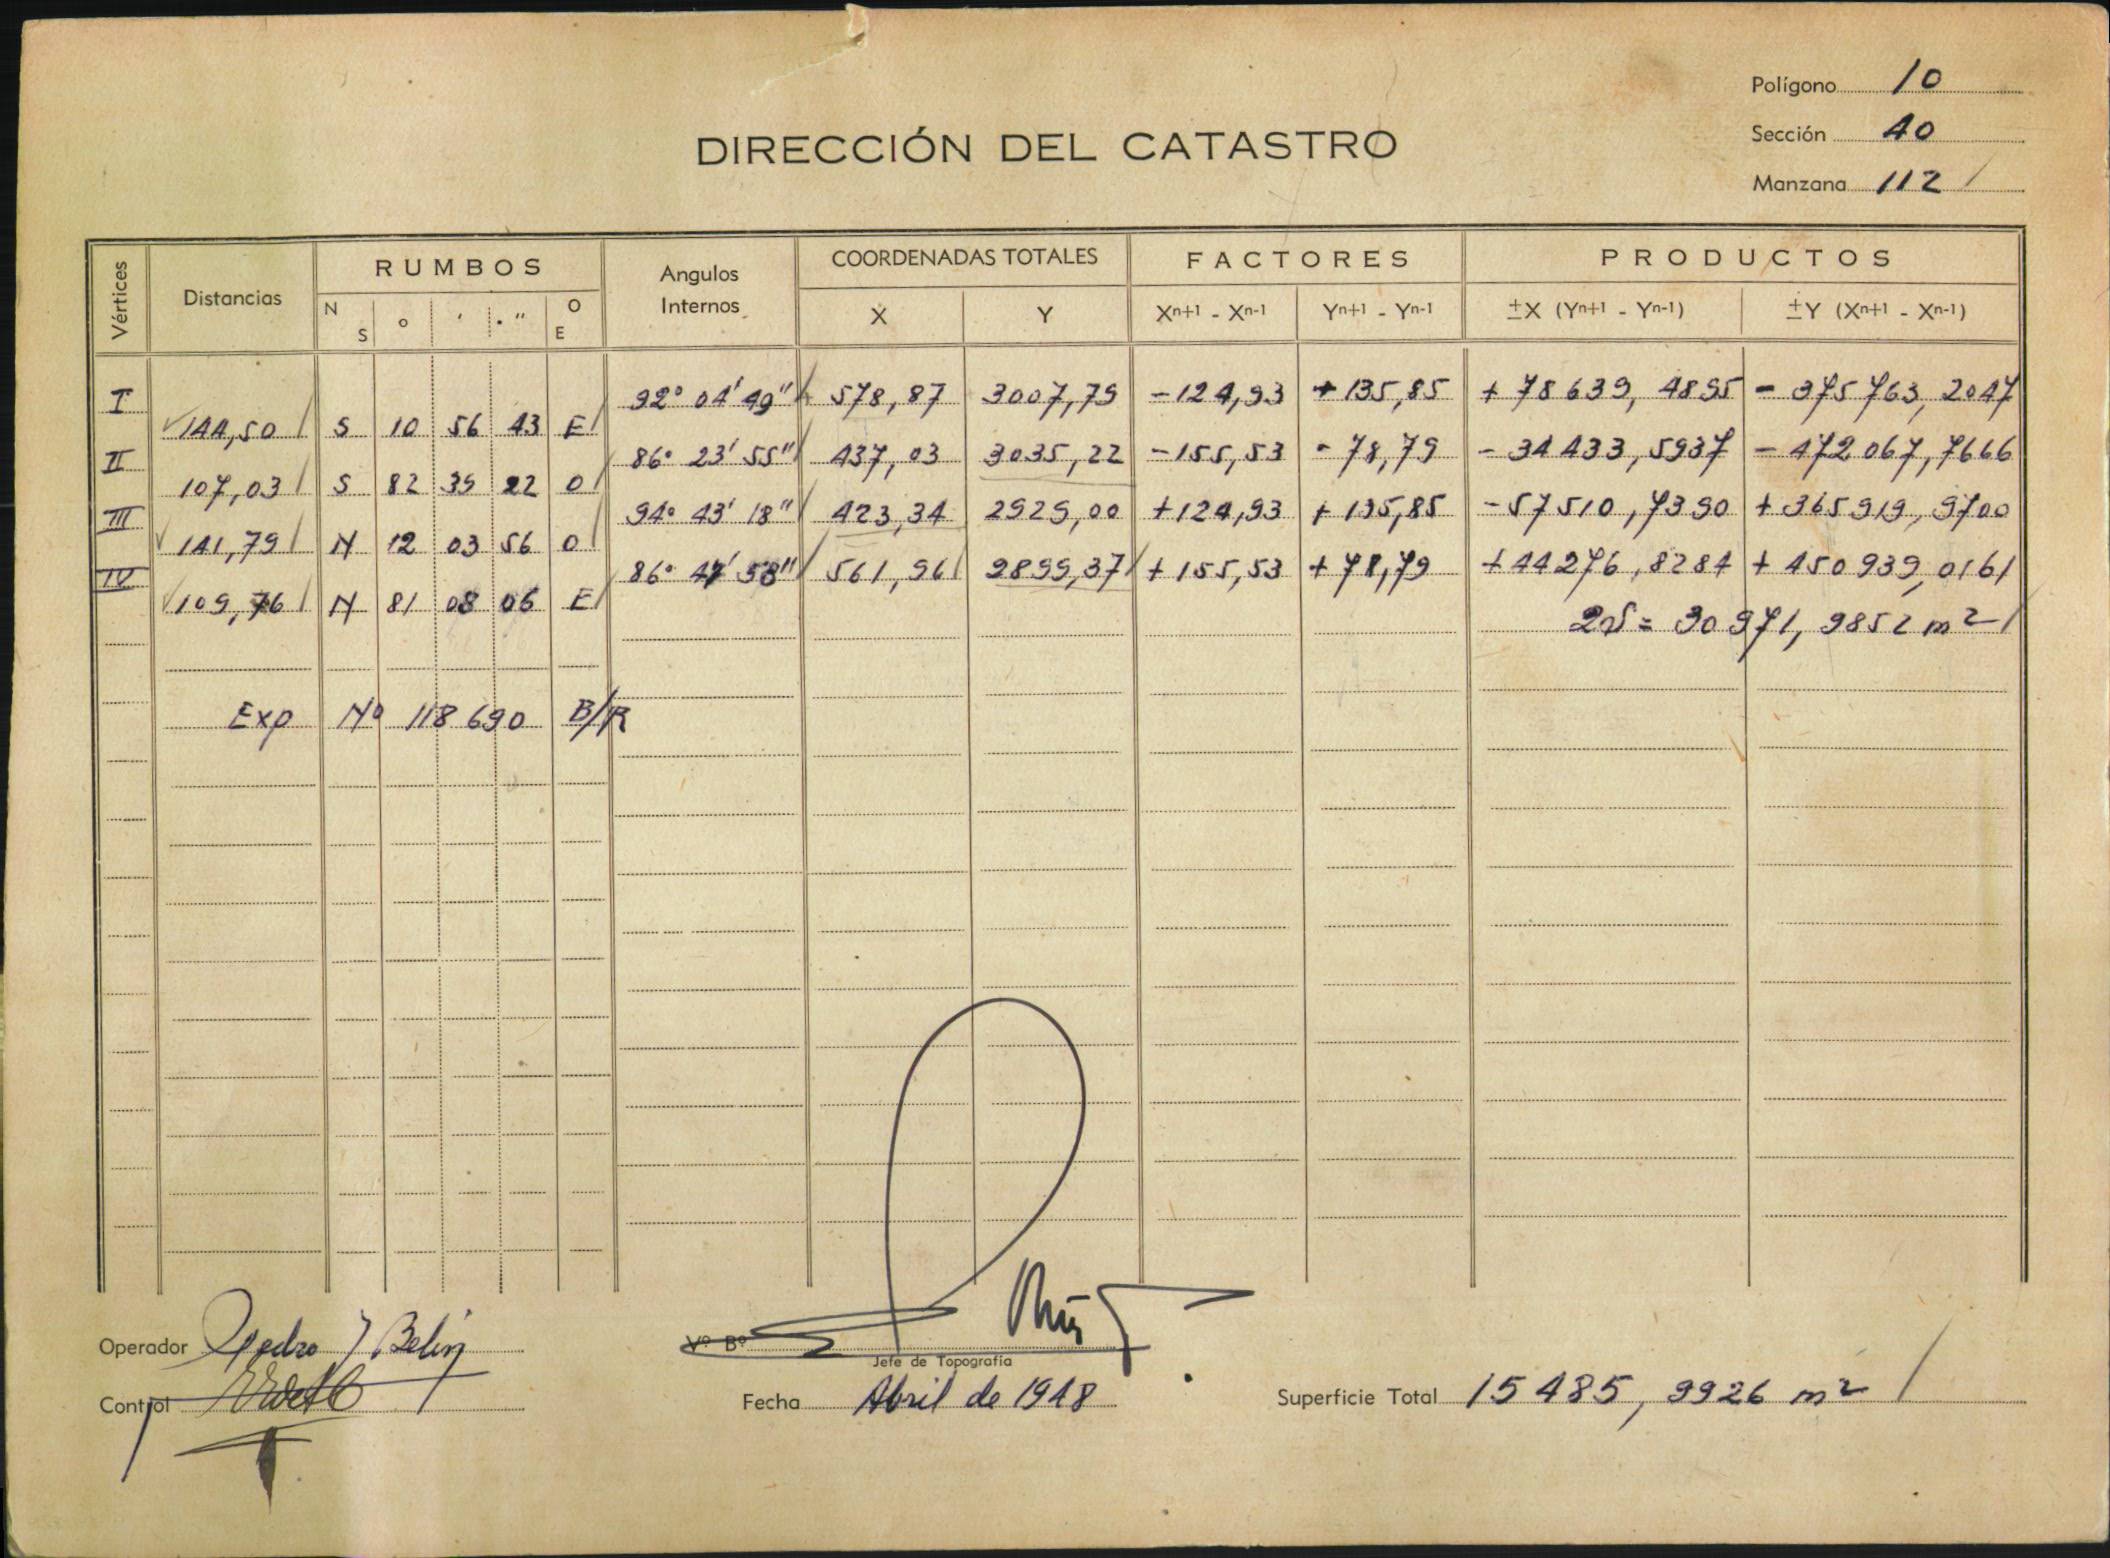 Polígono 10
Sección 40
Manzana 112
DIRECCIÓN DEL CATASTRO
Vértices Distancias RUMBOS Angulos Internos COORDENADAS TOTALES FACTORES PRODUCTOS
N S ° ' " O E X Y Xn+1 - Xn-1 Yn+1 - Yn-1 ±X (Yn+1 - Yn-1) ±Y (Xn+1 - Xn-1)
I 92° 04' 49" 578,87 3007,79 -124,93 +135,85 +78639,4895 -375763,2047
144,50 S 10 56 43 E
II 86° 23' 55" 437,03 3035,22 -155,53 -78,79 -34433,5937 -472067,7666
107,03 S 82 39 22 O
III 94° 43' 18" 423,34 2929,00 +124,93 +135,85 -57510,7390 +365919,9700
141,79 N 12 03 56 O
IV 86° 47' 58" 561,96 2899,37 +155,53 +78,79 +44276,8284 +450939,0161
109,76 N 81 08 06 E
2S = 30971,9852 m2
Exp Nº 118690 B/R
Operador Pedro J Belin
Vº Bº
Jefe de Topografía
Control
Fecha Abril de 1948
Superficie Total 15485,9926 m2